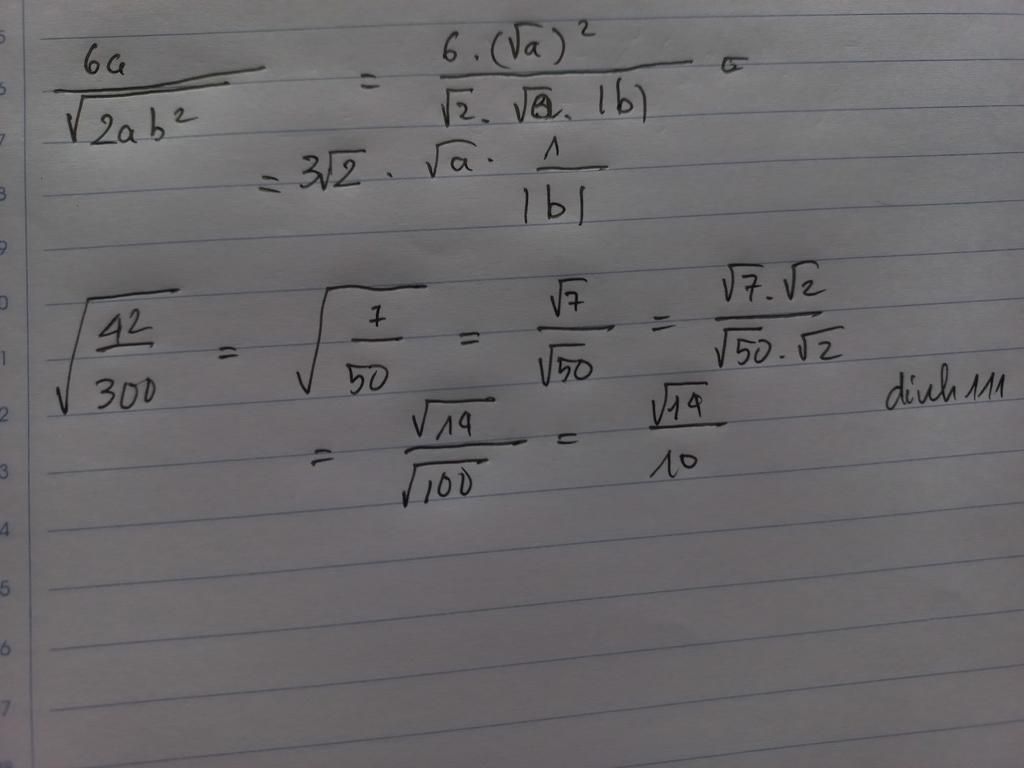 6a / √(2ab²) = 6 . (√a)² / (√2 . √a . |b|) =
= 3√2 . √a . 1 / |b|
√(42 / 300) = √(7 / 50) = √7 / √50 = √7 . √2 / (√50 . √2)
= √14 / √100 = √14 / 10